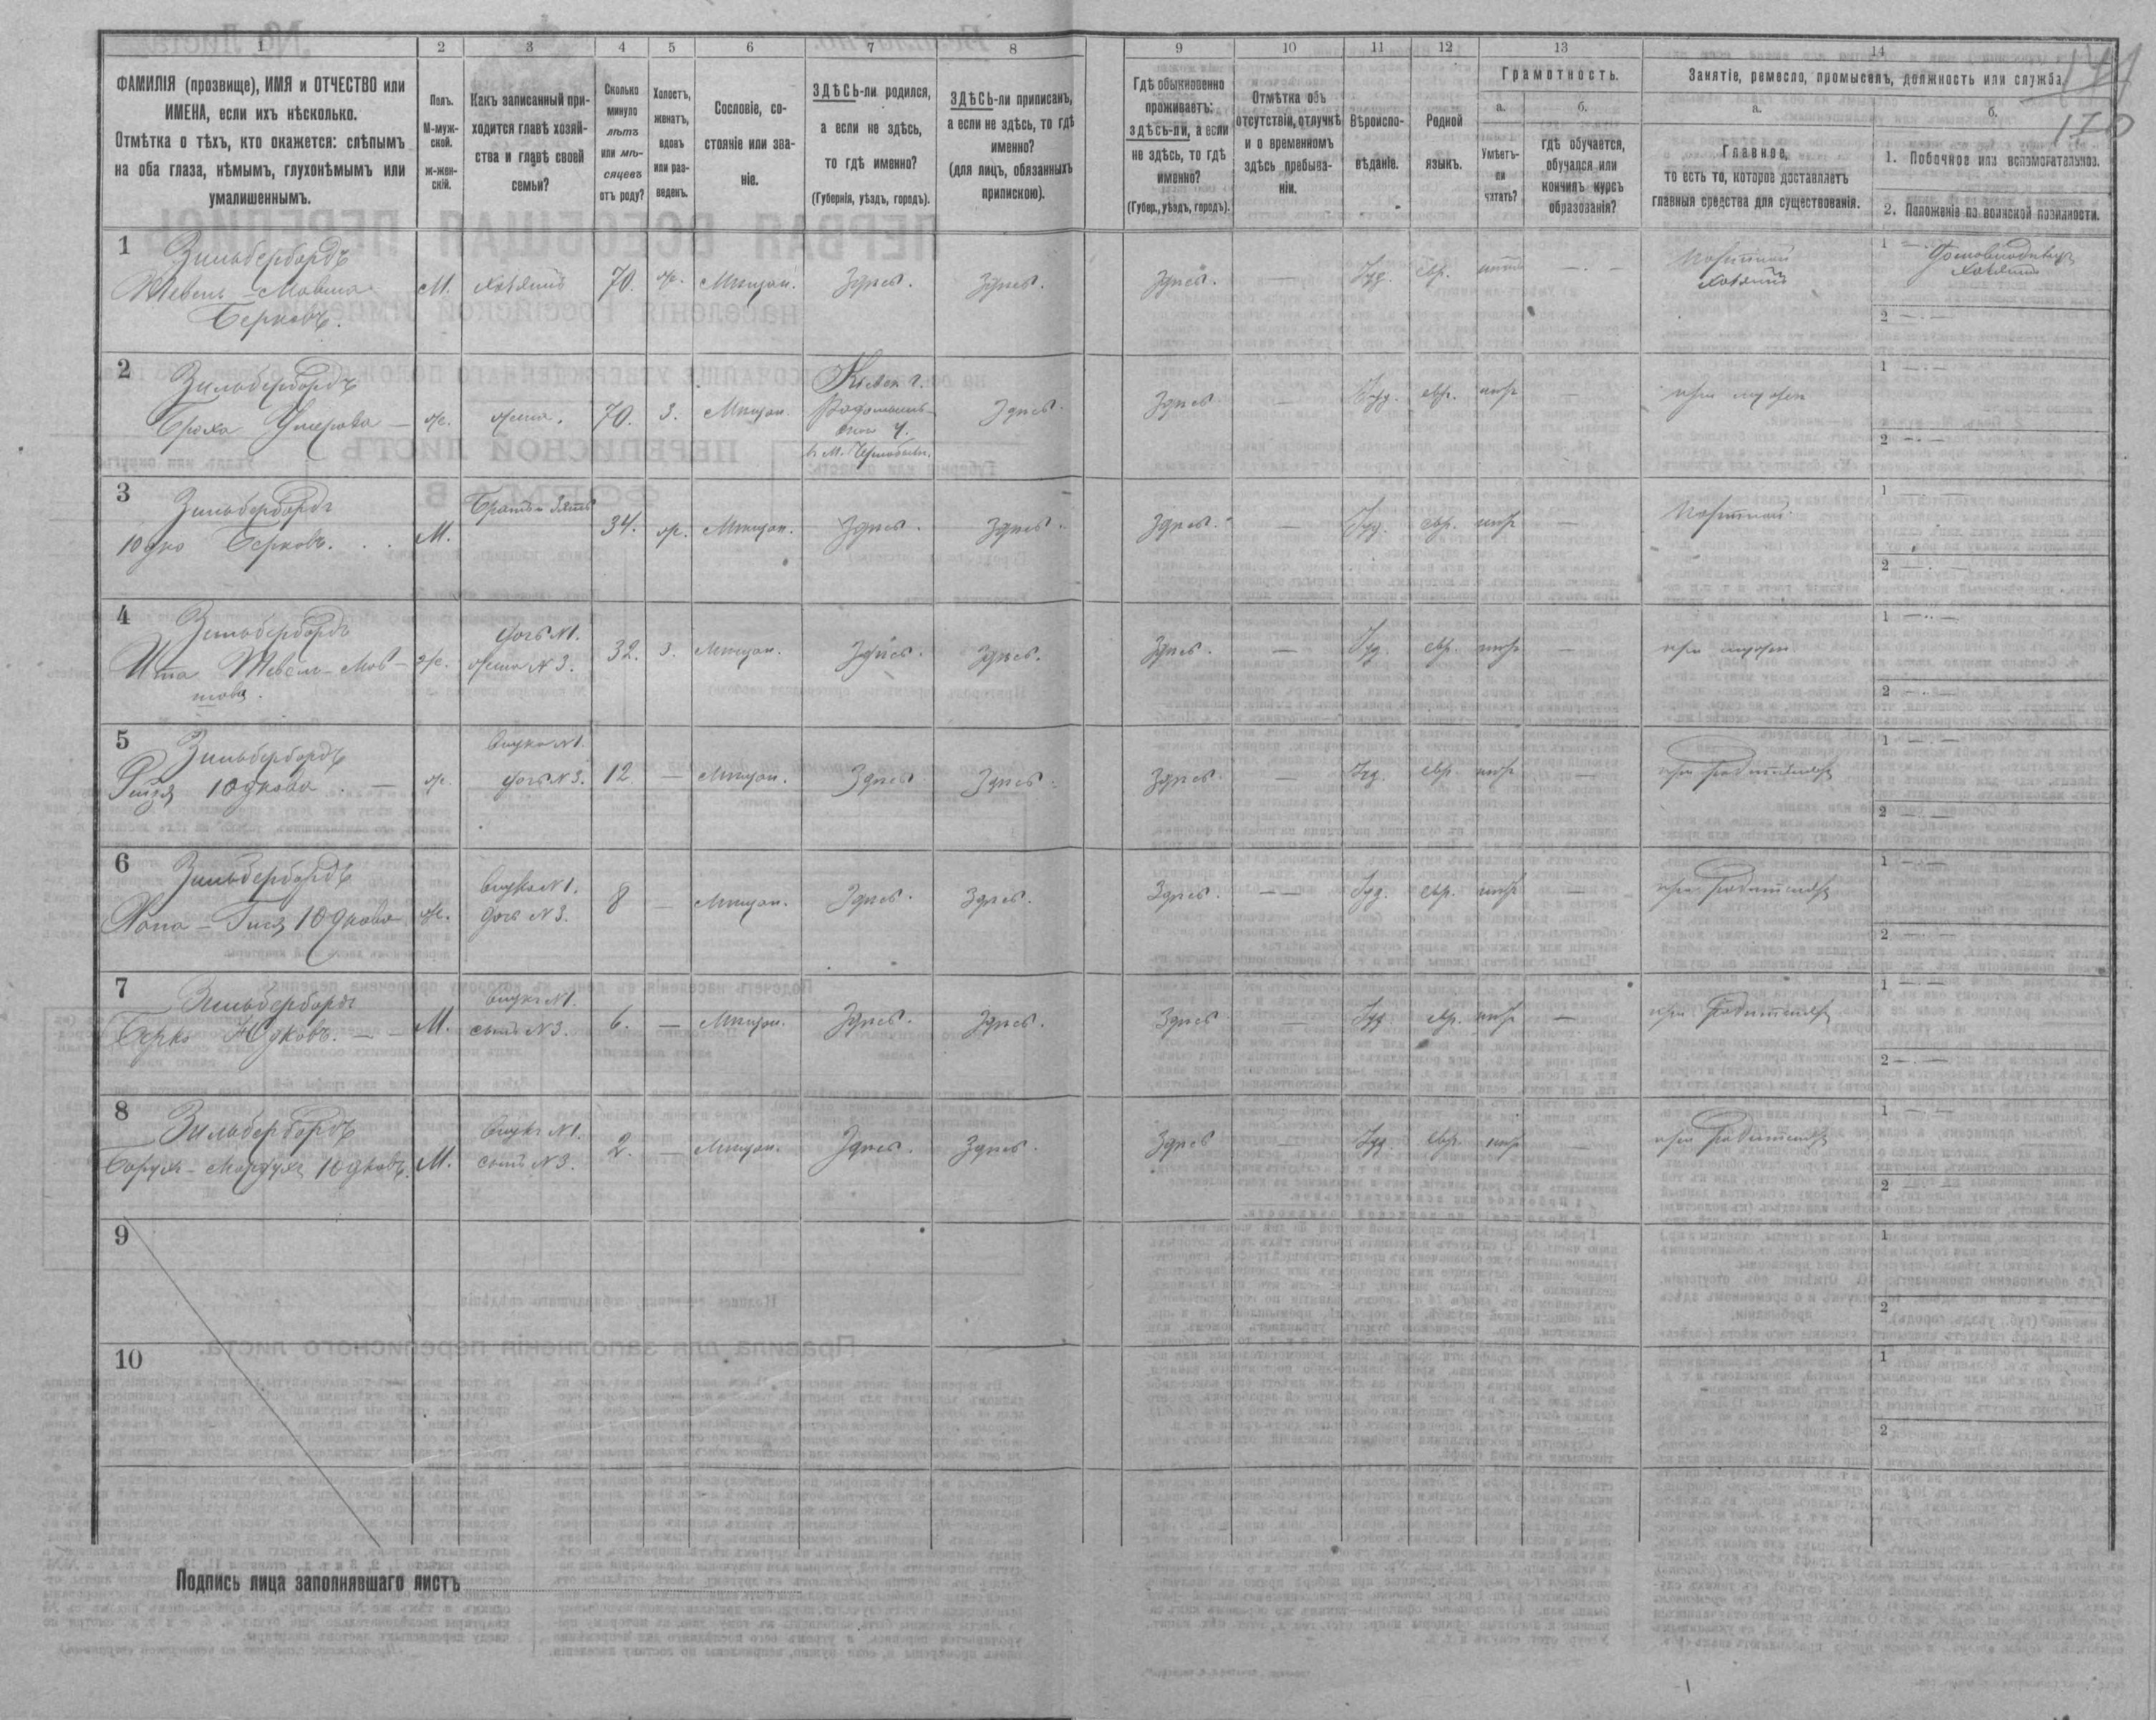 1
2
3
4
5
6
7
8
9
10
11
12
13
14
ФАМИЛІЯ (прозвище), ИМЯ и ОТЧЕСТВО или
ИМЕНА, если ихъ нѣсколько.
Отмѣтка о тѣхъ, кто окажется: слѣпымъ
на оба глаза, нѣмымъ, глухонѣмымъ или
умалишеннымъ.
Полъ.
М-муж-
ской.
ж-жен-
скій.
Какъ записанный при-
ходится главѣ хозяй-
ства и главѣ своей
семьи?
Сколько
минуло
лѣтъ
или мѣ-
сяцевъ
отъ роду?
Холостъ,
женатъ,
вдовъ
или раз-
веденъ.
Сословіе, со-
стояніе или зва-
ніе.
ЗДѢСЬ-ли родился,
а если не здѣсь,
то гдѣ именно?
(Губернія, уѣздъ, городъ).
ЗДѢСЬ-ли приписанъ,
а если не здѣсь, то гдѣ
именно?
(для лицъ, обязанныхъ
припискою).
Гдѣ обыкновенно
проживаетъ:
здѣсь-ли, а если
не здѣсь, то гдѣ
именно?
(Губер., уѣздъ, городъ).
Отмѣтка объ
отсутствіи, отлучкѣ
и о временномъ
здѣсь пребыва-
ніи.
Вѣроиспо-
вѣданіе.
Родной
языкъ.
Грамотность.
а.
Умѣетъ-
ли
читать?
б.
гдѣ обучается,
обучался или
кончилъ курсъ
образованія?
Занятіе, ремесло, промыселъ, должность или служба.
а.
Главное,
то есть то, которое доставляетъ
главныя средства для существованія.
б.
1. Побочное или вспомогательное.
2. Положеніе по воинской повинности.
170
1
Зильбербордъ
Шевель-Мовша
Берковъ.
М.
хозяинъ
70.
ж.
Мѣщан.
Здѣсь.
Здѣсь.
Здѣсь.
—
Іуд.
евр.
хозяинъ
1
2
2
Зильбербордъ
Броха
ж.
жена.
70.
З.
Мѣщан.
Кіевск г.
Радомысль-
ского у.
в м. Чернобыль.
Здѣсь.
Здѣсь
—
Іуд.
евр.
нѣтъ
—
при мужѣ
1
2
3
Зильбербордъ
Юдко Берковъ.
М.
Братъ и зять
34.
ж.
Мѣщан.
Здѣсь.
Здѣсь.
Здѣсь.
—
Іуд.
евр.
нѣтъ
—
1
2
4
Зильбербордъ
Шевель-Мов-
шова.
ж.
дочь №1.
жена №3.
32.
З.
Мѣщан.
Здѣсь.
Здѣсь.
Здѣсь.
—
Іуд.
евр.
нѣтъ
—
при мужѣ
1
2
5
Зильбербордъ
Рейзя Юдкова
ж.
внука №1.
дочь №3.
12.
—
Мѣщан.
Здѣсь.
Здѣсь.
Здѣсь.
—
Іуд.
евр.
нѣтъ
—
при родителяхъ
1
2
6
Зильбербордъ
Юдкова
ж.
внука №1.
дочь №3.
8
—
Мѣщан.
Здѣсь.
Здѣсь.
Здѣсь.
—
Іуд.
евр.
нѣтъ
—
при родителяхъ
1
2
7
Зильбербордъ
Берко Юдковъ.
М.
внукъ №1.
сынъ №3.
6.
—
Мѣщан.
Здѣсь.
Здѣсь.
Здѣсь
—
Іуд.
евр.
нѣтъ
—
при родителяхъ
1
2
8
Зильбербордъ
Борухъ-Мордухъ Юдковъ.
М.
внукъ №1.
сынъ №3.
2.
—
Мѣщан.
Здѣсь.
Здѣсь.
Здѣсь
—
Іуд.
евр.
нѣтъ
—
при родителяхъ
1
2
9
1
2
10
1
2
Подпись лица заполнявшаго листъ